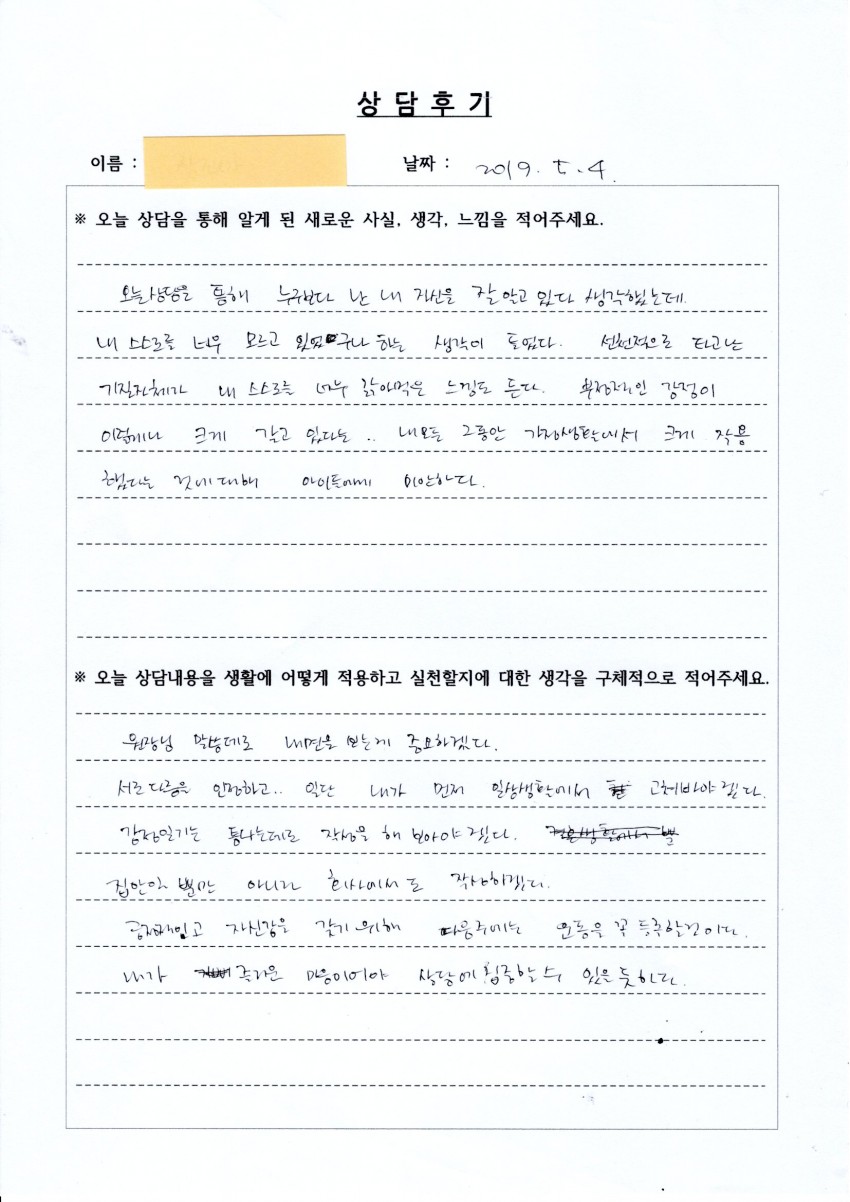 상 담 후 기
이름 : 날짜 : 2019. 5. 4.
※ 오늘 상담을 통해 알게 된 새로운 사실, 생각, 느낌을 적어주세요.
오늘상담을 통해 누구보다 난 내 자신을 잘 알고 있다 생각했는데.
내 스스로를 너무 모르고 있었구나 하는 생각이 드었다. 선천적으로 타고난
기질자체가 내 스스로를 너무 갉아먹은 느낌도 든다. 부정적인 감정이
이렇게나 크게 갖고 있다는 .. 내모든 그동안 가정생활에서 크게 작용
했다는 것에대해 아이들에게 미안하다.
※ 오늘 상담내용을 생활에 어떻게 적용하고 실천할지에 대한 생각을 구체적으로 적어주세요.
원장님 말씀데로 내면을 보는게 중요하겠다.
서로다름을 인정하고.. 일단 내가 먼저 일상생활에서 고쳐바야겠다.
감정일기는 틈나는데로 작성을 해 보아야겠다.
집안일 뿐만 아니라 회사에서도 작성하겠다.
자신감을 갖기 위해 다음주에는 운동을 꼭 등록할것이다.
내가 즐거운 마음이어야 상담에 집중할 수 있을 듯하다.